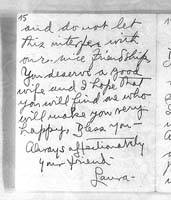 15
and do not let
this interfere with
our nice friendship.
You deserve a good
wife and I hope that
you will find me who
will make you very
happy. Bless you—
Always affectionately
your friend—
Laura—